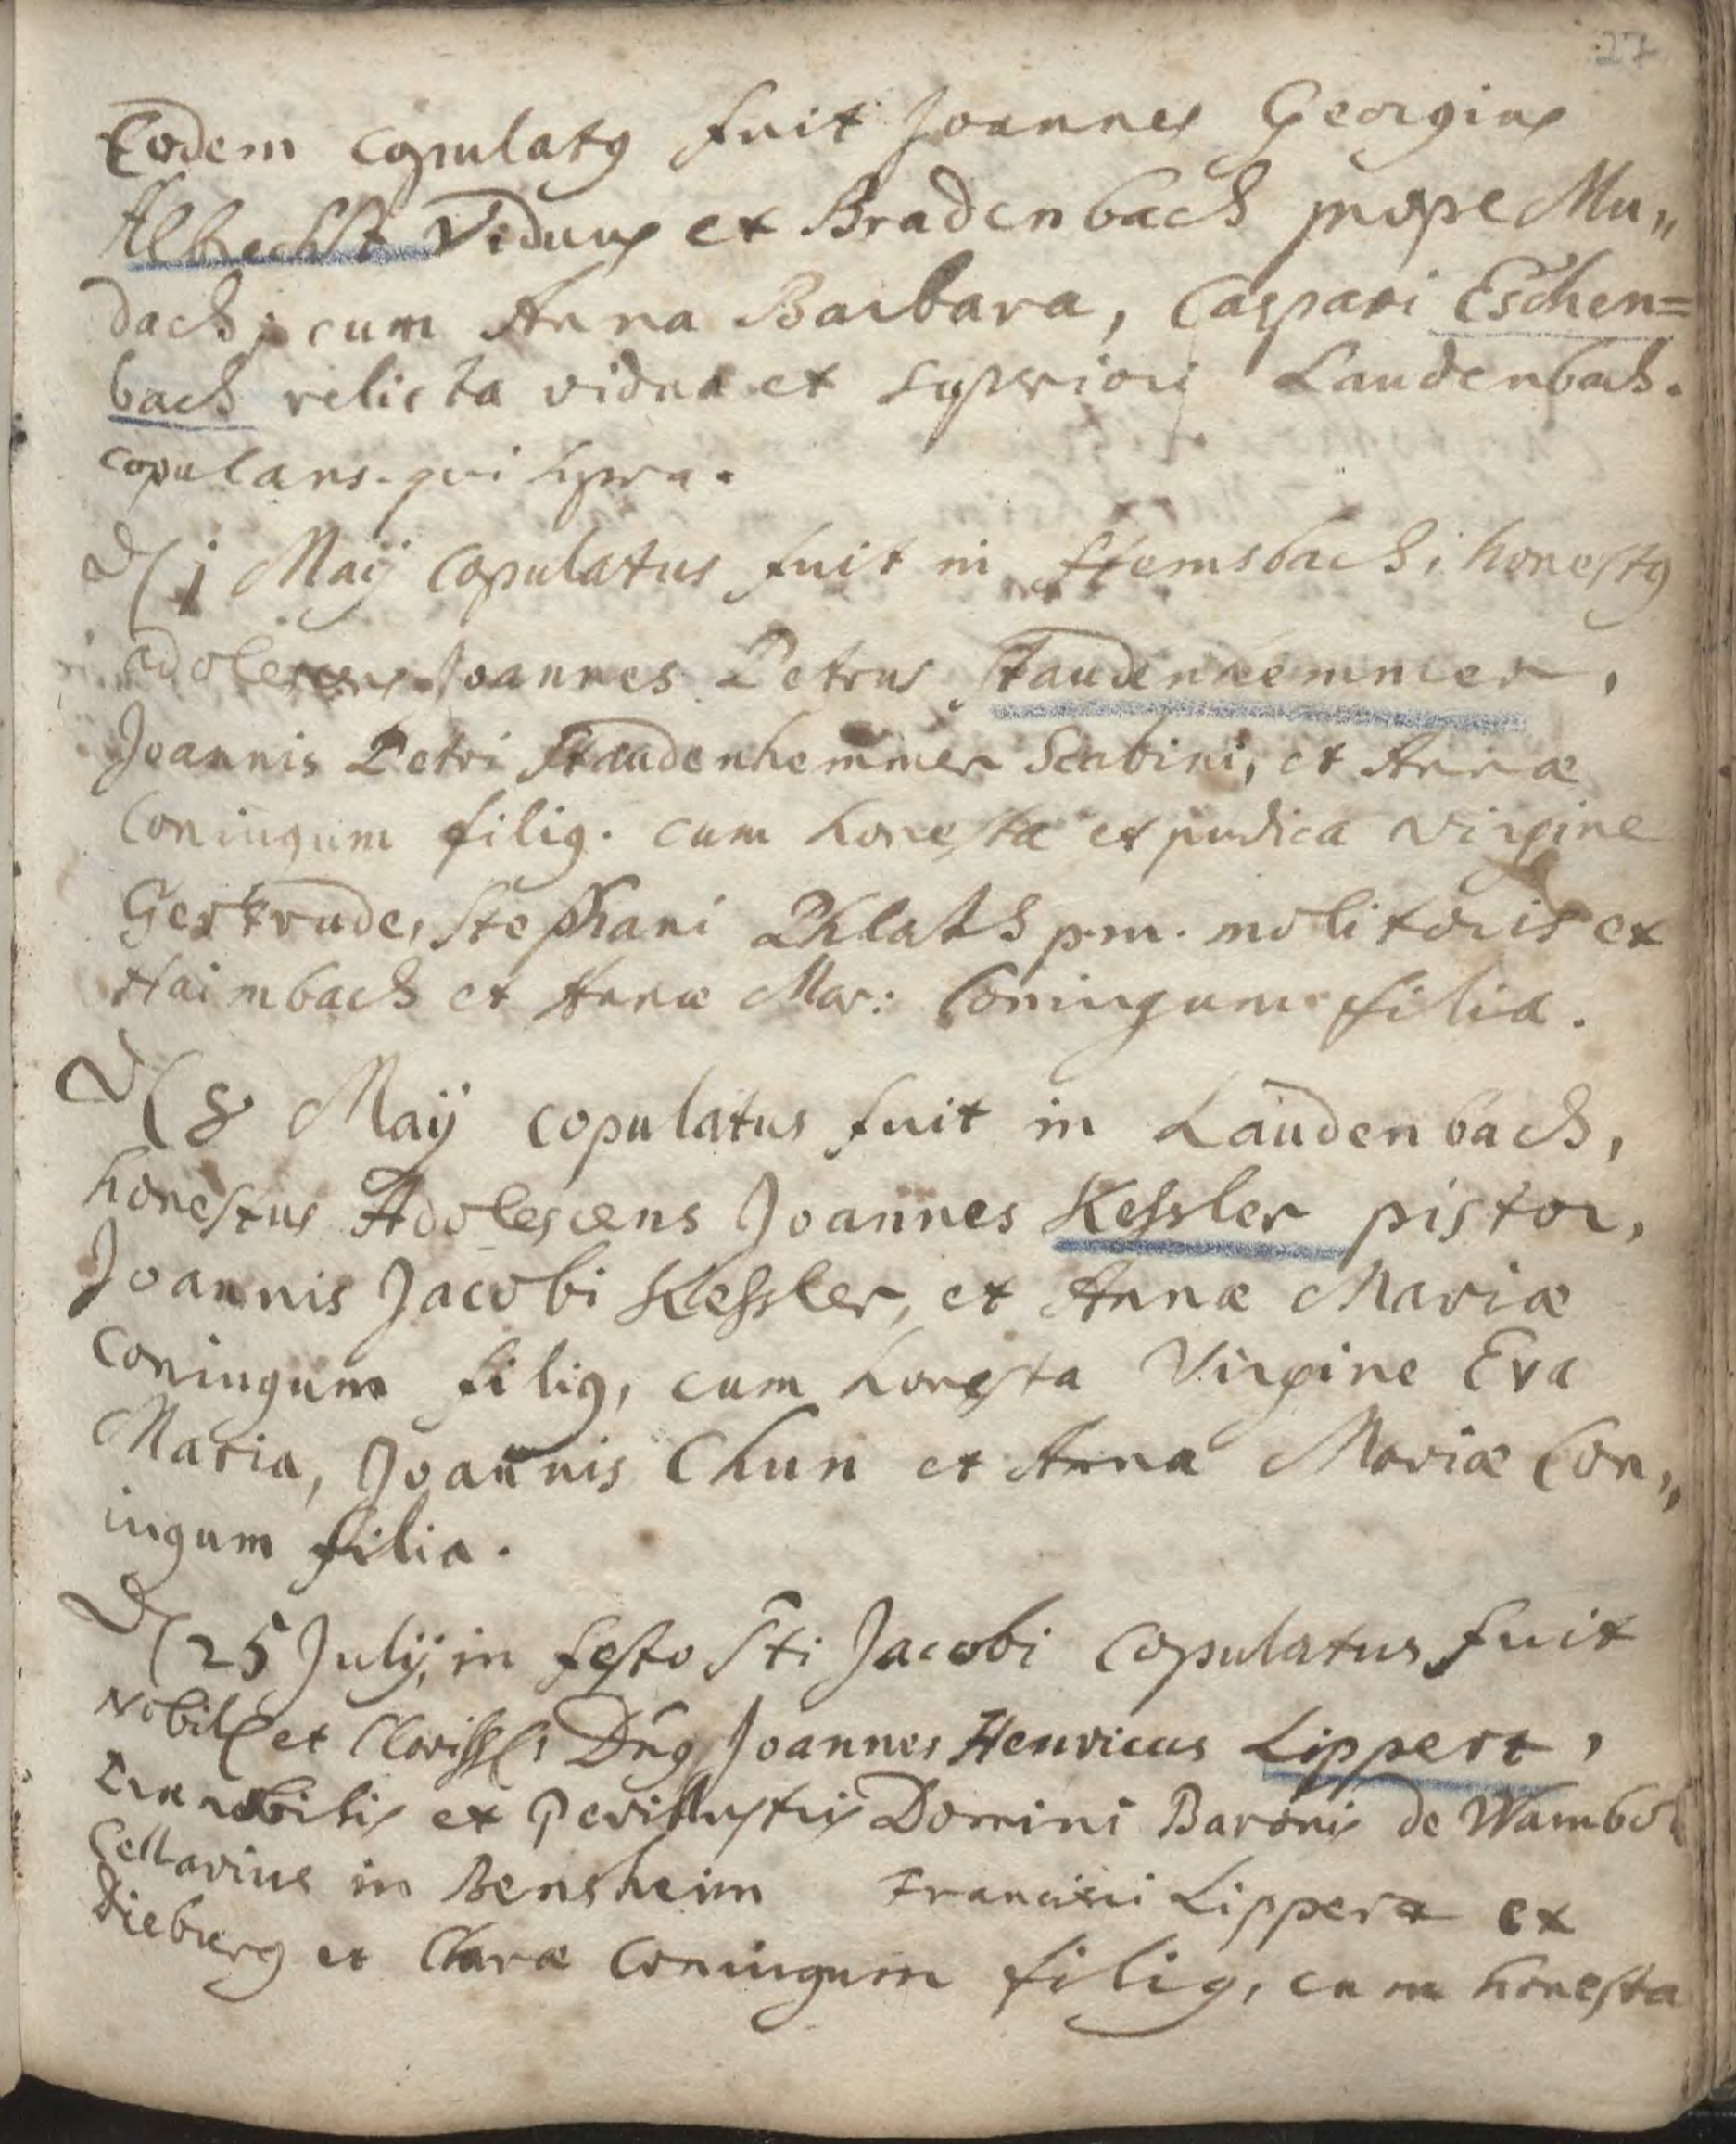 27
Eodem copulatg fuit Joannes Georgius
Albrecht Viduus ex Bradenbach prope Mu„
dach; cum Anna Barbara, Caspari Eschen=
bach relicta vidua ex superiori Laudenbach.
copulans. qui supra.
D(1 Maÿ Copulatus fuit in Hemsbach; honestg
adolescens Joannes Petrus Staudenhemmer,
Joannis Petri Staudenhemmer Scabini, et Annæ
Coniugum filig. cum honesta et pudica virgine
Gertrude, Stephani Phlatsch p.m. molitoris ex
Haimbach et Annæ Mar: Coniugum filia.
D(8 Maÿ copulatus fuit in Laudenbach,
honestus Adolescens Joannes Kessler pistor,
Joannis Jacobi Kessler, et Annæ Mariæ
Coniugum filig, cum honesta Virgine Eva
Maria, Joannis Chun et Anna Mariæ Con„
iugum filia.
D(25 Julÿ, in festo Sti Jacobi Copulatus fuit
Nobil et Clariss, Dng Joannes Henricus Lippert,
et Perillustris Domini Baronis de Wambol
Cellarius in Bensheim Francisci Lippert ex
Dieburg et Claræ Coniugum filig, cum honesta